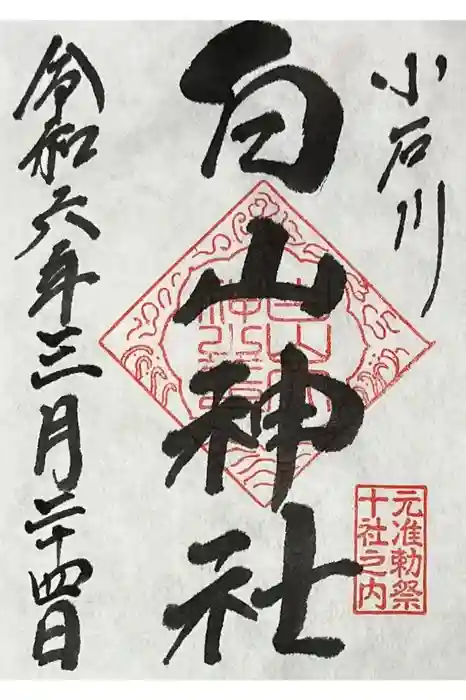 小石川
白山神社
令和六年三月二十四日
元准勅祭
十社之内